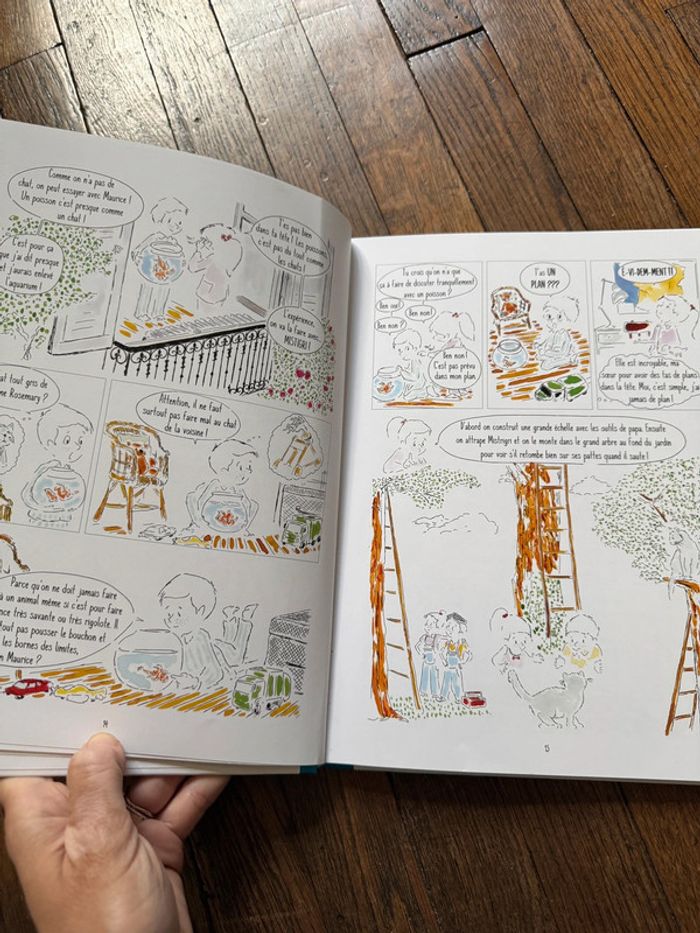 Comme on n'a pas de
chat, on peut essayer avec Maurice !
Un poisson c'est presque comme
un chat !
T'es pas bien
dans ta tête ! Les poissons,
c'est pas du tout comme
les chats !
C'est pour ça
que j'ai dit presque
et j'aurais enlevé
l'aquarium !
L'expérience,
on va la faire avec
MISTIGRI !
chat tout gris de
Rosemary ?
Attention, il ne faut
surtout pas faire mal au chat
de la voisine !
Parce qu'on ne doit jamais faire
à un animal même si c'est pour faire
très savante ou très rigolote. Il
pousser le bouchon et
les bornes des limites,
Maurice ?
14
Tu crois qu'on n'a que
ça à faire de discuter tranquillement
avec un poisson ?
Ben oui !
Ben non !
Ben non ?
Ben non !
C'est pas prévu
dans mon plan
T'as UN
PLAN ???
E-VI-DEM-MENT !!
Elle est incroyable, ma
sœur pour avoir des tas de plans
dans la tête. Moi, c'est simple, j'ai
jamais de plan !
D'abord on construit une grande échelle avec les outils de papa. Ensuite
on attrape Mistigri et on le monte dans le grand arbre au fond du jardin
pour voir s'il retombe bien sur ses pattes quand il saute !
15